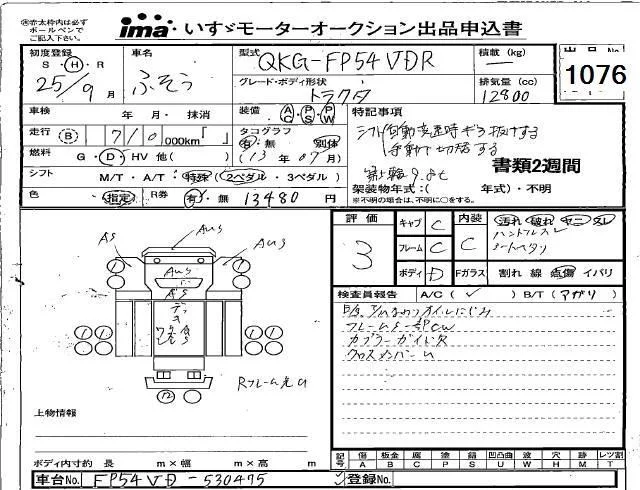 ㊟赤太枠内は必ず
ボールペンで
ご記入下さい。
ima・いすゞモーターオークション出品申込書
初度登録 S・H・R 25/9月
車名 ふそう
型式 QKG-FP54VDR
積載 — (kg)
出品No.
1076
グレード・ボディ形状 トラクタ
排気量(cc) 12800
車検 年・月・抹消
装備 AC PS PW
特記事項
走行 B 710 000km『 』
タコグラフ 有・無 別体
(13年07月)
シフト自動変速時ギヤ抜けする
手動で切替する
第5輪9.8t
書類2週間
燃料 G・D・HV 他( )
シフト M/T・A/T・特殊(2ペダル・3ペダル)
架装物年式:( 年式)・不明
※不明の場合は、不明に○をする。
色 指定
R券 有・無 13480円
評価 3
キャブ C
フレーム C
ボディ D
内装 C
汚れ 破れ ヤニ スレ
ハンドルスレ
Fガラス 割れ 線 点傷 イバリ
検査員報告 A/C(✓) B/T(マガリ)
フレームS一部CW
カプラーガイド欠
クロスメンバーU
AS
AUS
AUS
AUS
AUS
AS
Rフレーム先U
12
上物情報
ボディ内寸約 長 m×幅 m×高 m
記号 傷 A 板金 B 腐 C 塗 P 錆 S 凹凸曲 U 波 W 穴 H 的 M レツ割 T
車台No. FP54VD-530475
登録No.